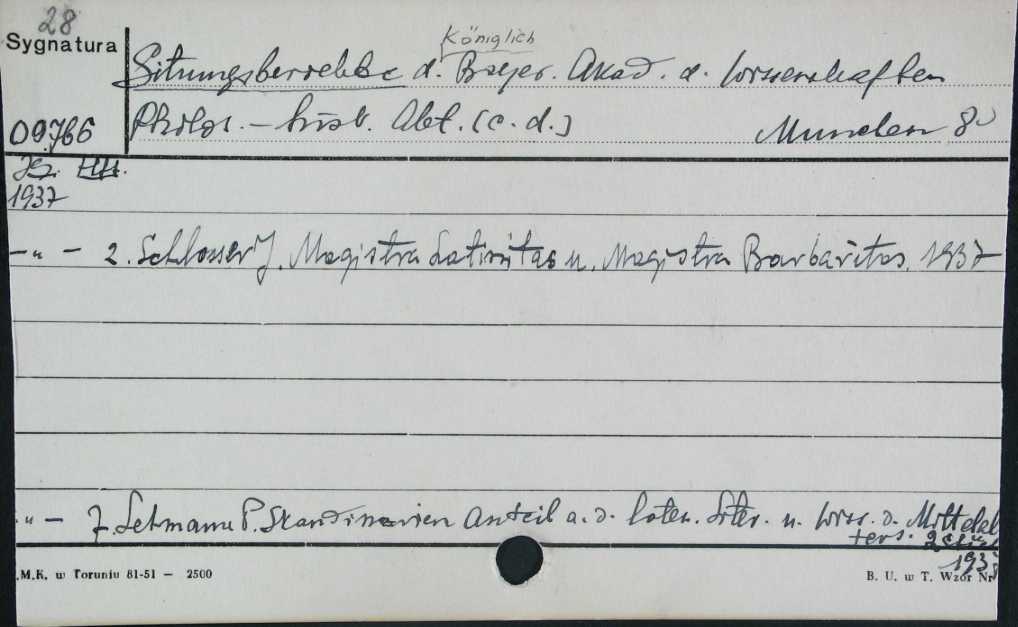 28
Sygnatura
Königlich
Sitzungsberichte d. Bayer. Akad. d. Wissenschaften
09766
Philos. - hist. Abt. (c. d.)
Munchen 8°
1937
-"- 2. Schlosser J. Magistra Latinitas u. Magistra Barbaritas. 1937
-"- 7. Lehmann P. Skandinavien Anteil a. d. laten. Liter. u. Wiss. d. Mittelal
ters. 2
193
.M.K. w Toruniu 81-51 — 2500
B. U. w T. Wzór Nr